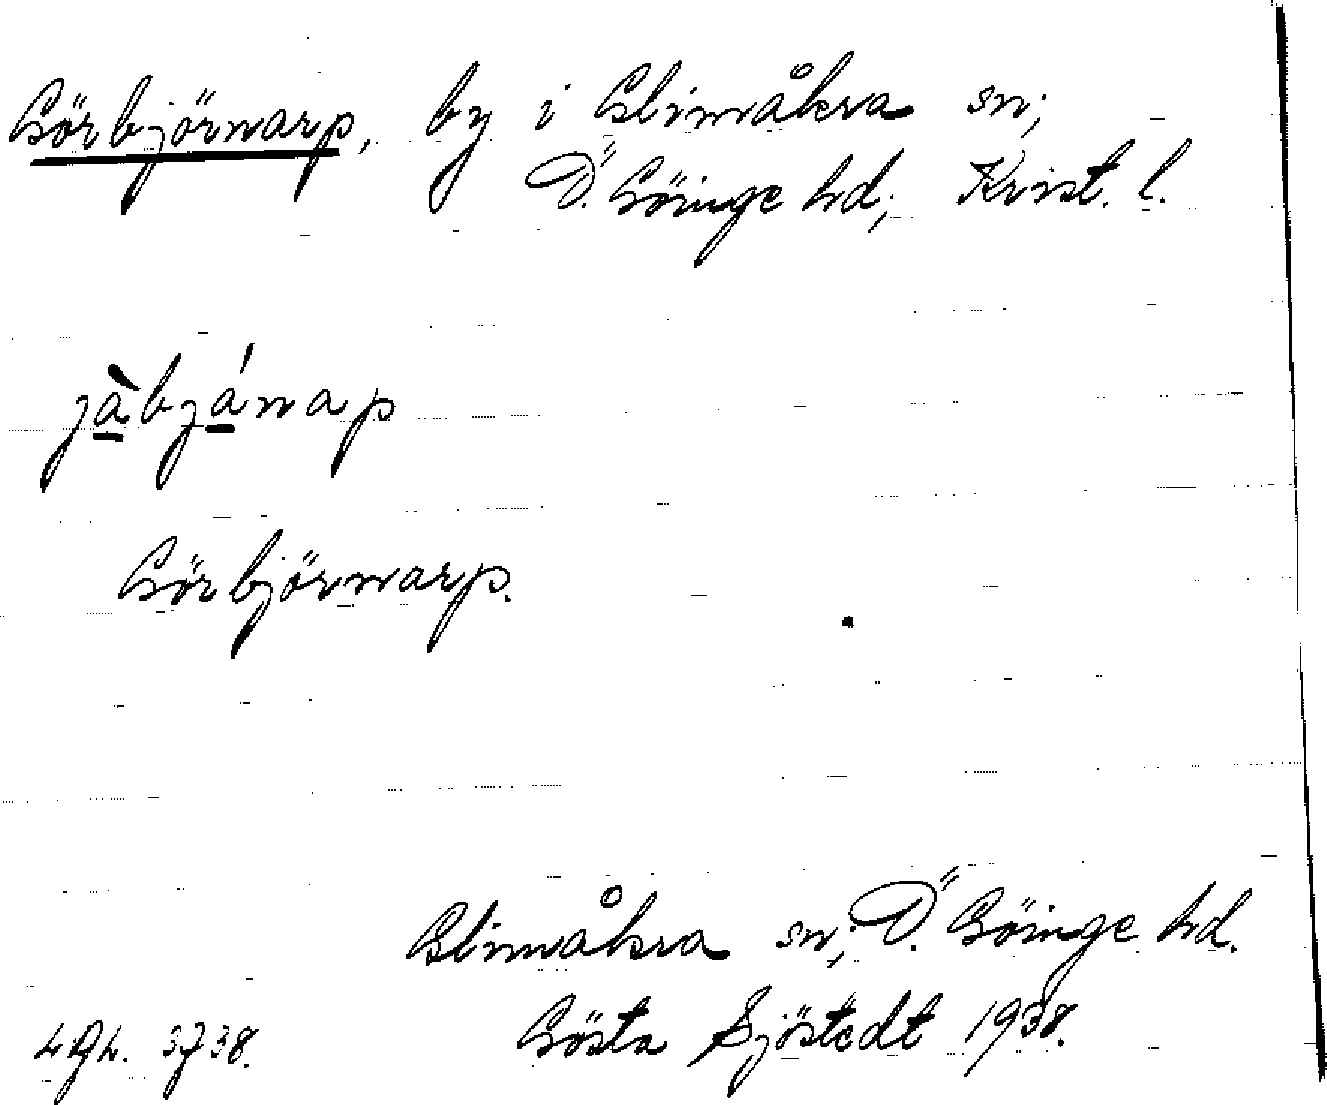 Görbjörnarp, by i Glimåkra sn;
Ö. Göinge hd; Krist. l.
jàbjánap
Görbjörnarp.
Glimåkra sn; Ö. Göinge hd.
Gösta Sjöstedt 1938.
3738.